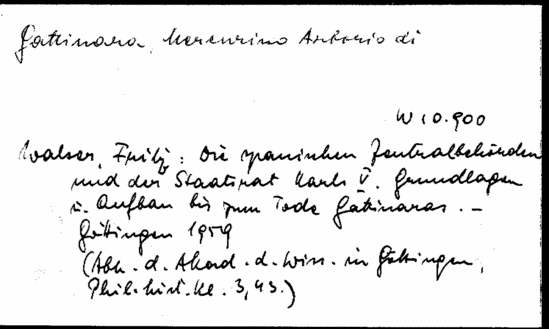 Gattinara, Mercurino Antonio di
W 10.900
Walser, Fritz: Die spanischen Zentralbehörden
und der Staatsrat Karls V. Grundlagen
u. Aufbau bis zum Tode Gattinaras. –
Göttingen 1959
(Abh. d. Akad. d. Wiss. in Göttingen,
Phil.-hist. Kl. 3,43.)